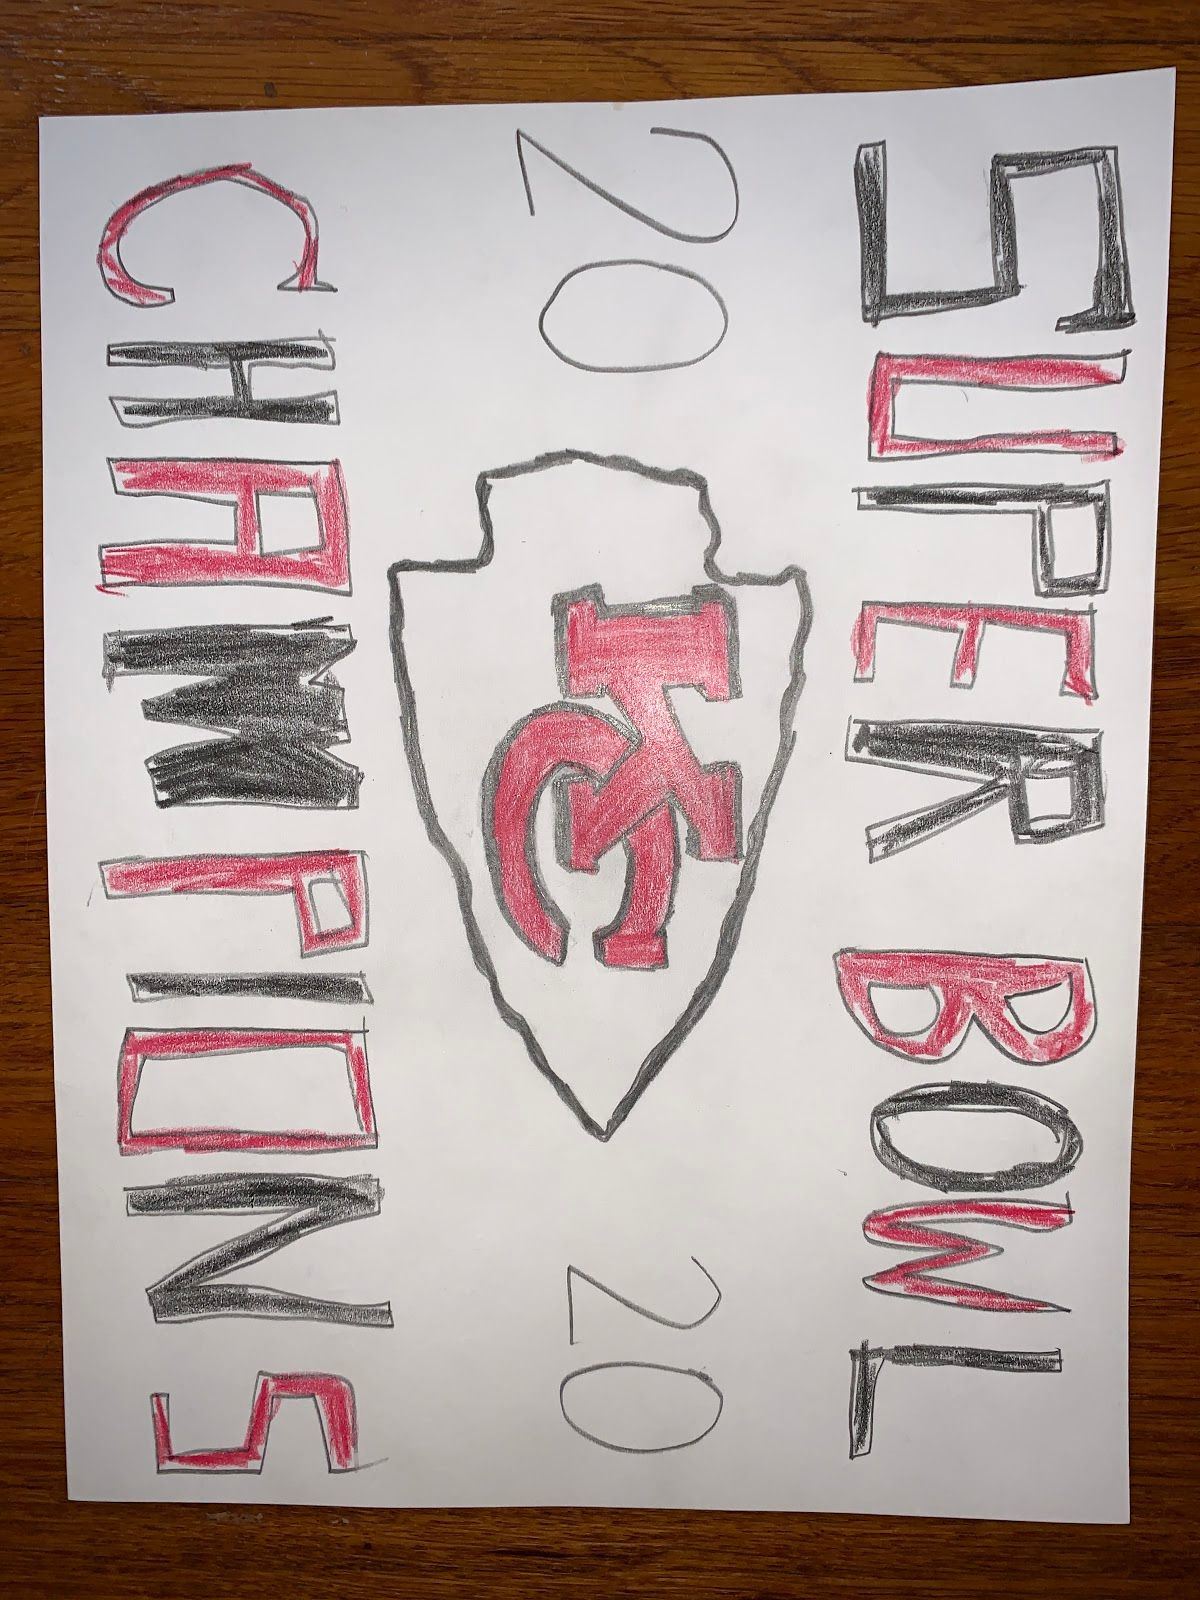 SUPER BOWL
20 KC 20
CHAMPIONS